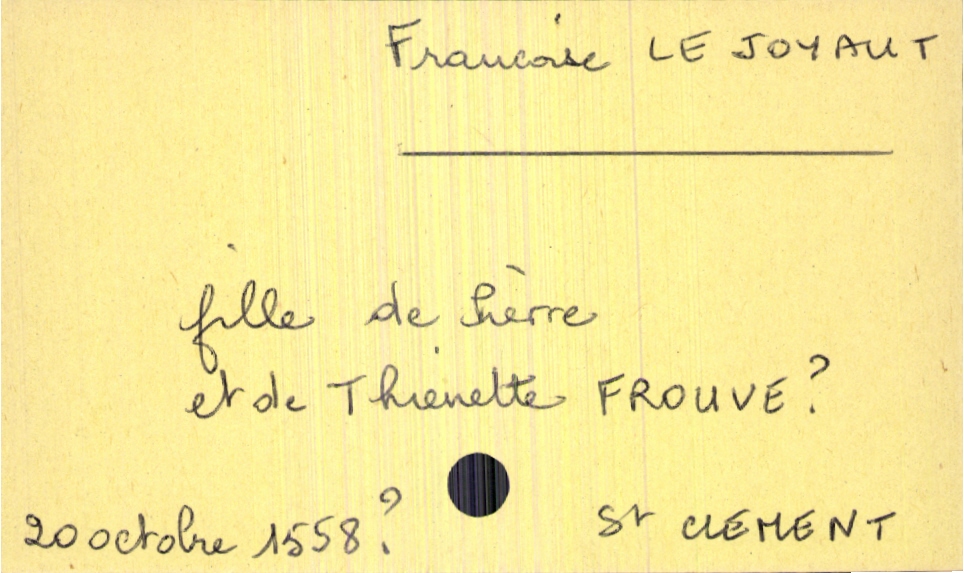 Francoise LE JOYAUT
fille de Pierre
et de Thienette FROUVE?
20 octobre 1558? St CLEMENT